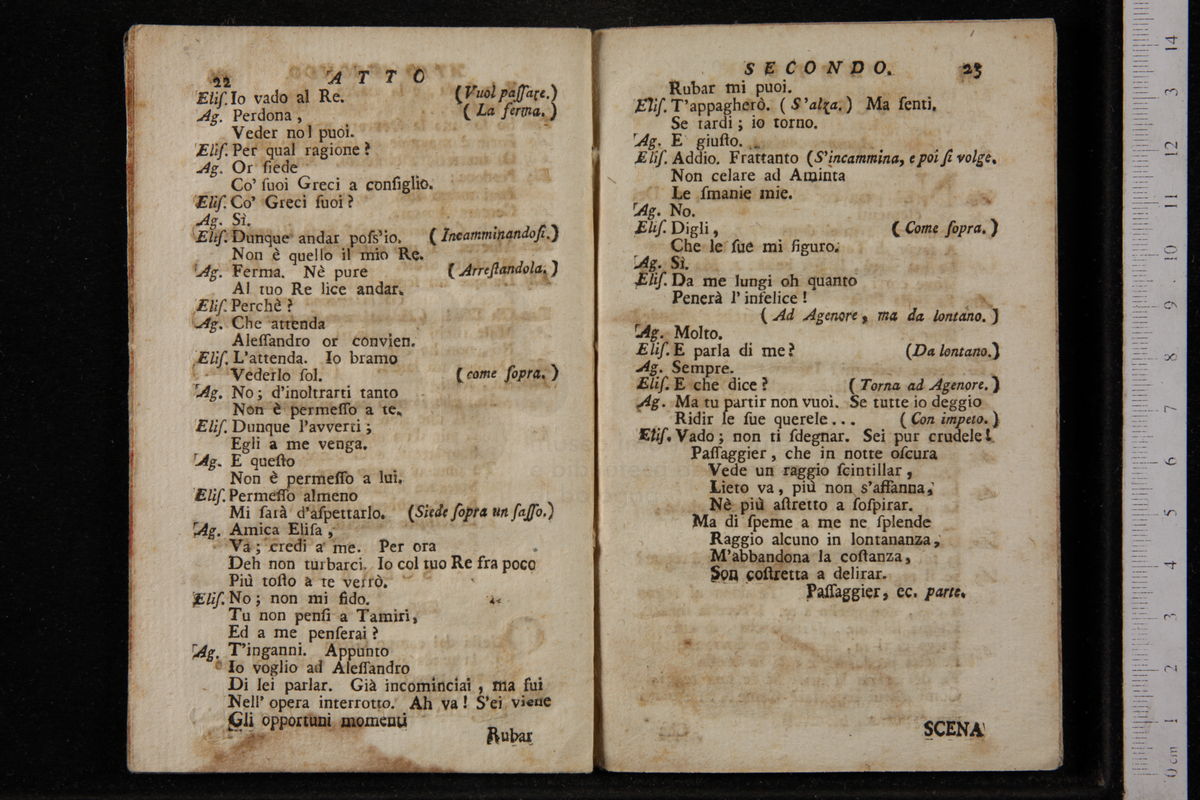 22 ATTO
Eliſ. Io vado al Re. (Vuol paſſare.)
Ag. Perdona, (La ferma.)
Veder nol puoi.
Eliſ. Per qual ragione?
Ag. Or ſiede
Co' ſuoi Greci a conſiglio.
Eliſ. Co' Greci ſuoi?
Ag. Sì.
Eliſ. Dunque andar poſs'io. (Incamminandoſi.)
Non è quello il mio Re.
Ag. Ferma. Nè pure (Arreſtandola.)
Al tuo Re lice andar.
Eliſ. Perchè?
Ag. Che attenda
Aleſſandro or convien.
Eliſ. L'attenda. Io bramo
Vederlo ſol. (come ſopra.)
Ag. No; d'inoltrarti tanto
Non è permeſſo a te.
Eliſ. Dunque l'avverti;
Egli a me venga.
Ag. E queſto
Non è permeſſo a lui.
Eliſ. Permeſſo almeno
Mi ſarà d'aſpettarlo. (Siede ſopra un ſaſſo.)
Ag. Amica Eliſa,
Va; credi a me. Per ora
Deh non turbarci. Io col tuo Re fra poco
Più toſto a te verrò.
Eliſ. No; non mi fido.
Tu non penſi a Tamiri,
Ed a me penſerai?
Ag. T'inganni. Appunto
Io voglio ad Aleſſandro
Di lei parlar. Già incominciai, ma fui
Nell' opera interrotto. Ah va! S'ei viene
Gli opportuni momenti
Rubar
SECONDO. 23
Rubar mi puoi.
Eliſ. T'appagherò. (S'alza.) Ma ſenti.
Se tardi; io torno.
Ag. E giuſto.
Eliſ. Addio. Frattanto (S'incammina, e poi ſi volge.
Non celare ad Aminta
Le ſmanie mie.
Ag. No.
Eliſ. Digli, (Come ſopra.)
Che le ſue mi figuro.
Ag. Sì.
Eliſ. Da me lungi oh quanto
Penerà l'infelice!
(Ad Agenore, ma da lontano.)
Ag. Molto.
Eliſ. E parla di me? (Da lontano.)
Ag. Sempre.
Eliſ. E che dice? (Torna ad Agenore.)
Ag. Ma tu partir non vuoi. Se tutte io deggio
Ridir le ſue querele... (Con impeto.)
Eliſ. Vado; non ti ſdegnar. Sei pur crudele!
Paſſaggier, che in notte oſcura
Vede un raggio ſcintillar,
Lieto va, più non s'affanna,
Nè più aſtretto a ſoſpirar.
Ma di ſpeme a me ne ſplende
Raggio alcuno in lontananza,
M'abbandona la coſtanza,
Son coſtretta a delirar.
Paſſaggier, ec. parte.
SCENA
0 cm 1 2 3 4 5 6 7 8 9 10 11 12 3 14